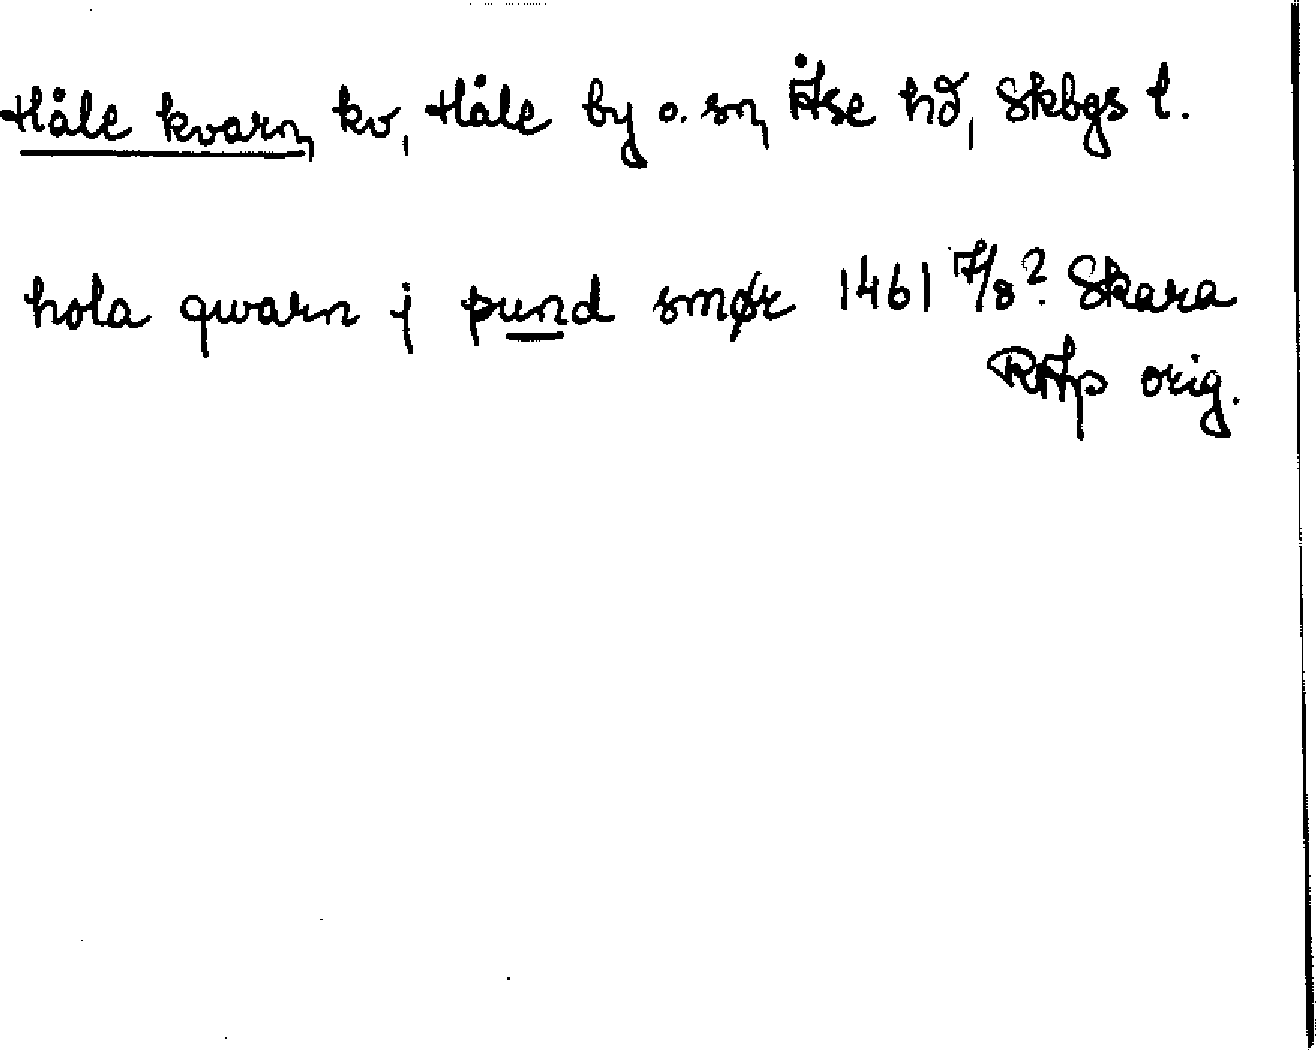 Håle kvarn, kv, Håle by o. sn, Åse hd, Skbgs l.
hola qwarn j pund smør 1461 7/8? Skara
RAp orig.